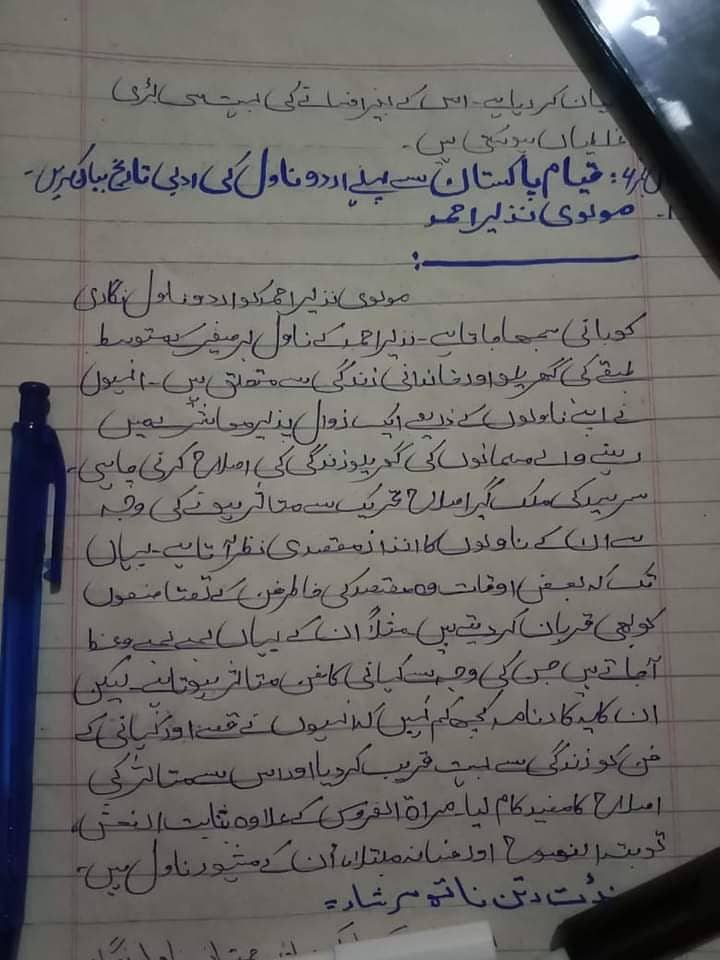 بیان کر دیا ہے۔ اس کے بغیر افسانے کی بہت سی بڑی
غلطیاں ہو سکتی ہیں۔
قیام پاکستان سے پہلے اردو ناول کی ادبی تاریخ بیان کریں۔
مولوی نذیر احمد
مولوی نذیر احمد کو اردو ناول نگاری
کو بانی سمجھا جاتا ہے۔ نذیر احمد کے ناول برصغیر کے متوسط
طبقے کی گھریلو اور خاندانی زندگی سے متعلق ہیں۔ انہوں
نے اپنے ناولوں کے ذریعے ایک زوال پذیر معاشرے میں
رہنے والے مسلمانوں کی گھریلو زندگی کی اصلاح کرنی چاہی۔
سرسید کی ملک گیر اصلاحی تحریک سے متاثر ہونے کی وجہ
سے ان کے ناولوں کا انداز مقصدی نظر آتا ہے۔ یہاں
تک کہ بعض اوقات وہ مقصد کی خاطر فن کے تقاضوں
کو بھی قربان کر دیتے ہیں مثلاً ان کے یہاں لمبے لمبے وعظ
آ جاتے ہیں جن کی وجہ سے کہانی کا فن متاثر ہوتا ہے۔ لیکن
ان کا یہ کارنامہ کچھ کم نہیں کہ انہوں نے قصے اور کہانی کے
فن کو زندگی سے بہت قریب کر دیا اور اس سے معاشرے کی
اصلاح کا مفید کام لیا۔ مراۃ العروس کے علاوہ بنات النعش،
توبتہ النصوح اور فسانہ مبتلا، ان کے مشہور ناول ہیں۔
پنڈت رتن ناتھ سرشار۔